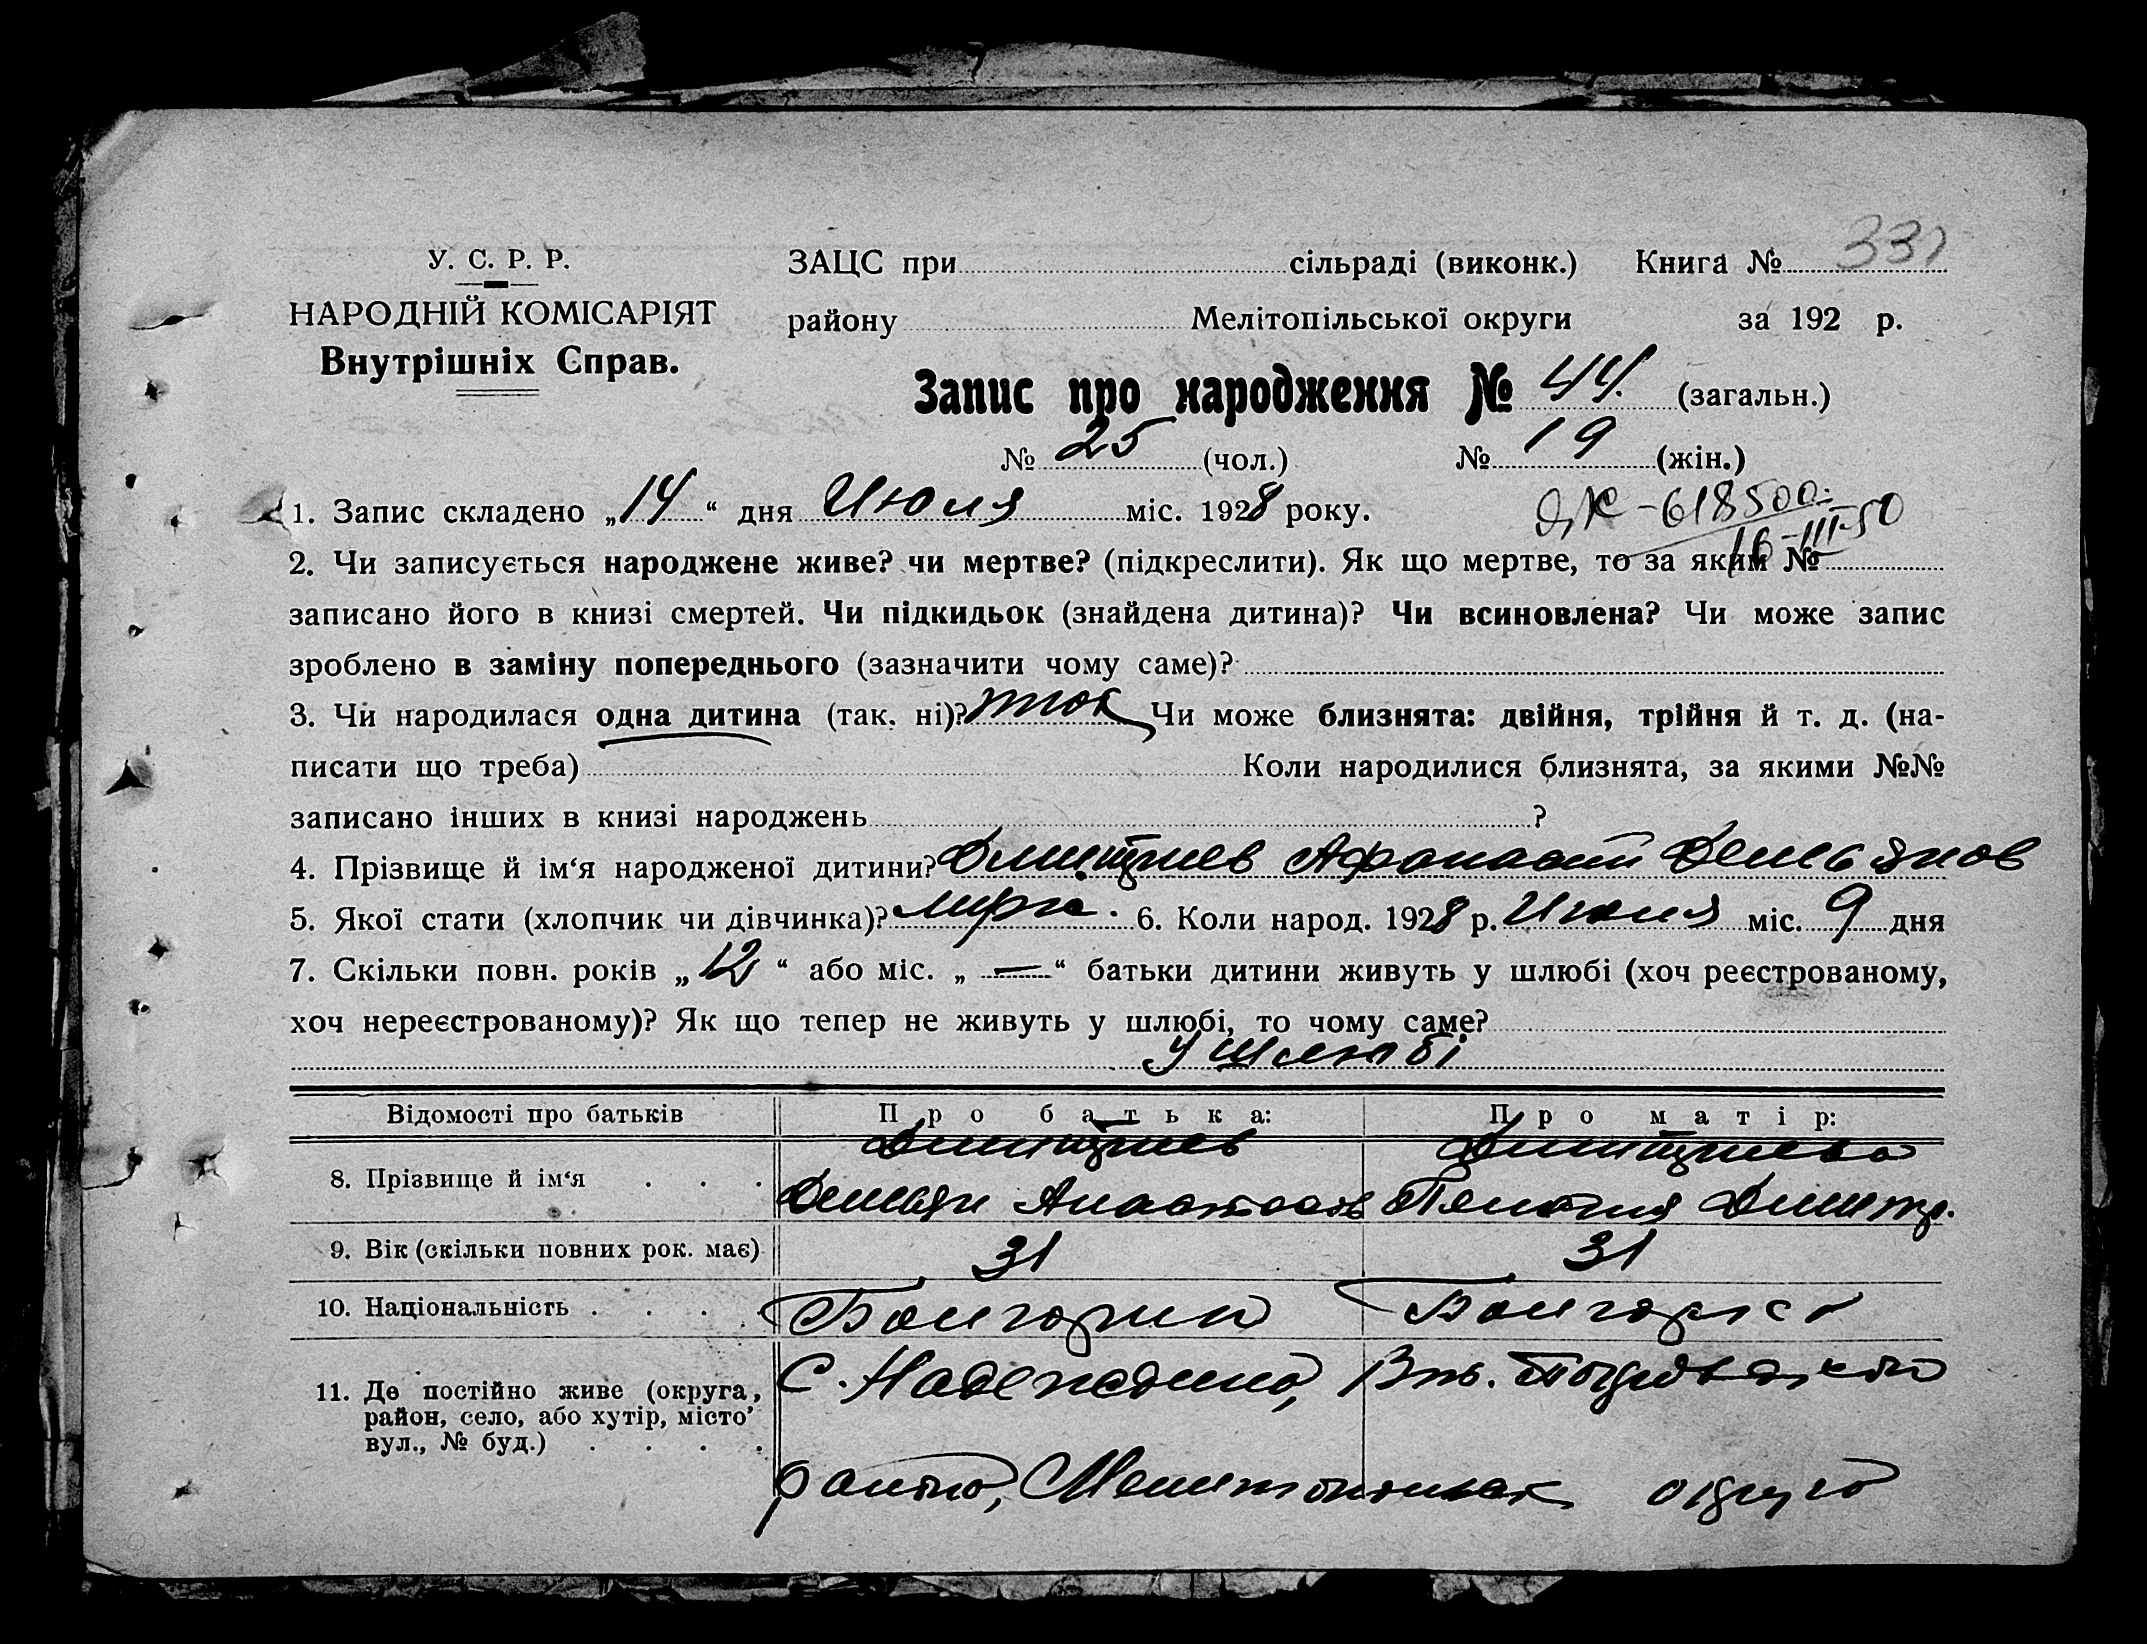 У. С. Р. Р.
НАРОДНІЙ КОМІСАРІЯТ
Внутрішніх Справ.
ЗАЦС при сільраді (виконк.) Книга № 331
району Мелітопільської округи за 192 р.
Запис про народження № 44. (загальн.)
№ 25 (чол.) № 19 (жін.)
1. Запис складено „14“ дня Июля міс. 1928 року.
ЯК-618500
16-III-50
2. Чи записується народжене живе? чи мертве? (підкреслити). Як що мертве, то за яким №
записано його в книзі смертей. Чи підкидьок (знайдена дитина)? Чи всиновлена? Чи може запис
зроблено в заміну попереднього (зазначити чому саме)?
3. Чи народилася одна дитина (так, ні)? так Чи може близнята: двійня, трійня й т. д. (на-
писати що треба) Коли народилися близнята, за якими №№
записано інших в книзі народжень ?
4. Прізвище й ім‘я народженої дитини? Димитриев Афанасий Демьянов
5. Якої стати (хлопчик чи дівчинка)? 6. Коли народ. 1928 р. Июля міс. 9 дня
7. Скільки повн. років „12“ або міс. „—“ батьки дитини живуть у шлюбі (хоч реєстрованому,
хоч нереєстрованому)? Як що тепер не живуть у шлюбі, то чому саме?
У шлюбі
Відомості про батьків Про батька: Про матір:
8. Прізвище й ім‘я Димитриев Димитриева
Демьян Анастасов Пелагия Димитр.
9. Вік (скільки повних рок. має) 31 31
10. Національність Болгарин Болгарка
11. Де постійно живе (округа, район, село, або хутір, місто, вул., № буд.) С. Надеждино,
района, Мелитопольск округа